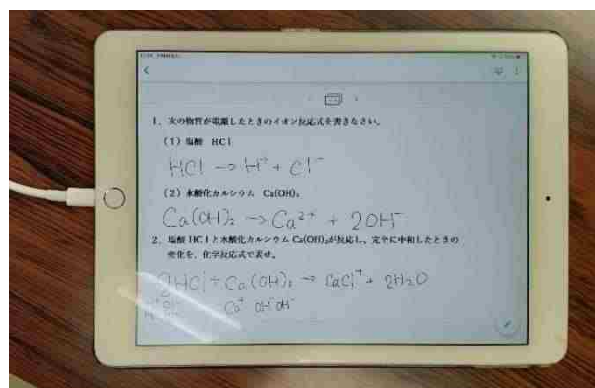 1．次の物質が電離したときのイオン反応式を書きなさい。
（1）塩酸 HCl
HCl → H⁺ + Cl⁻
（2）水酸化カルシウム Ca(OH)₂
Ca(OH)₂ → Ca²⁺ + 2OH⁻
2．塩酸 HCl と水酸化カルシウム Ca(OH)₂が反応し、完全に中和したときの
変化を、化学反応式で表せ。
2HCl + Ca(OH)₂ → CaCl⁺ + 2H₂O
Ca⁺ OH⁻ OH⁻